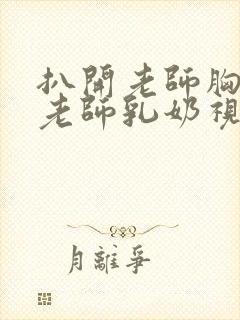 扒開老師胸
老師乳奶視
月離爭